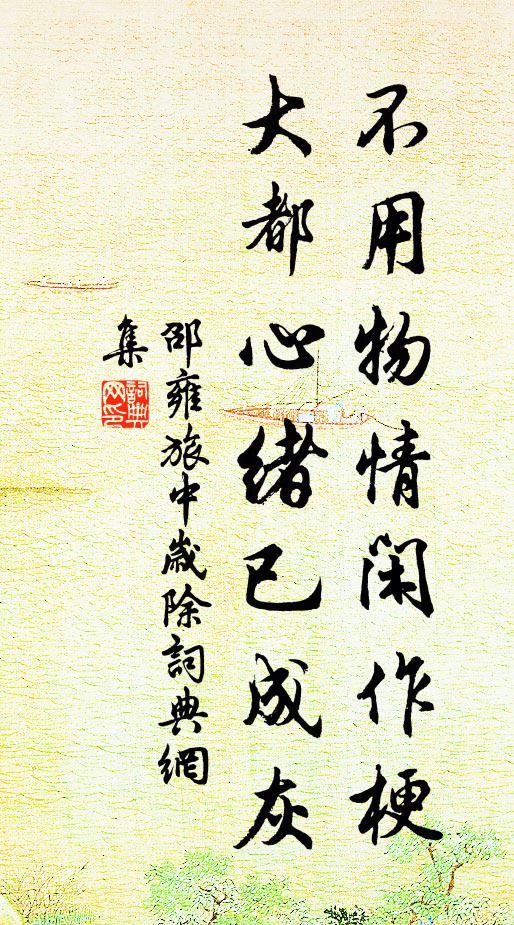 不用物情閑作梗
大都心緒已成灰
邵雍旅中歲除詞典網
集
詞典網印